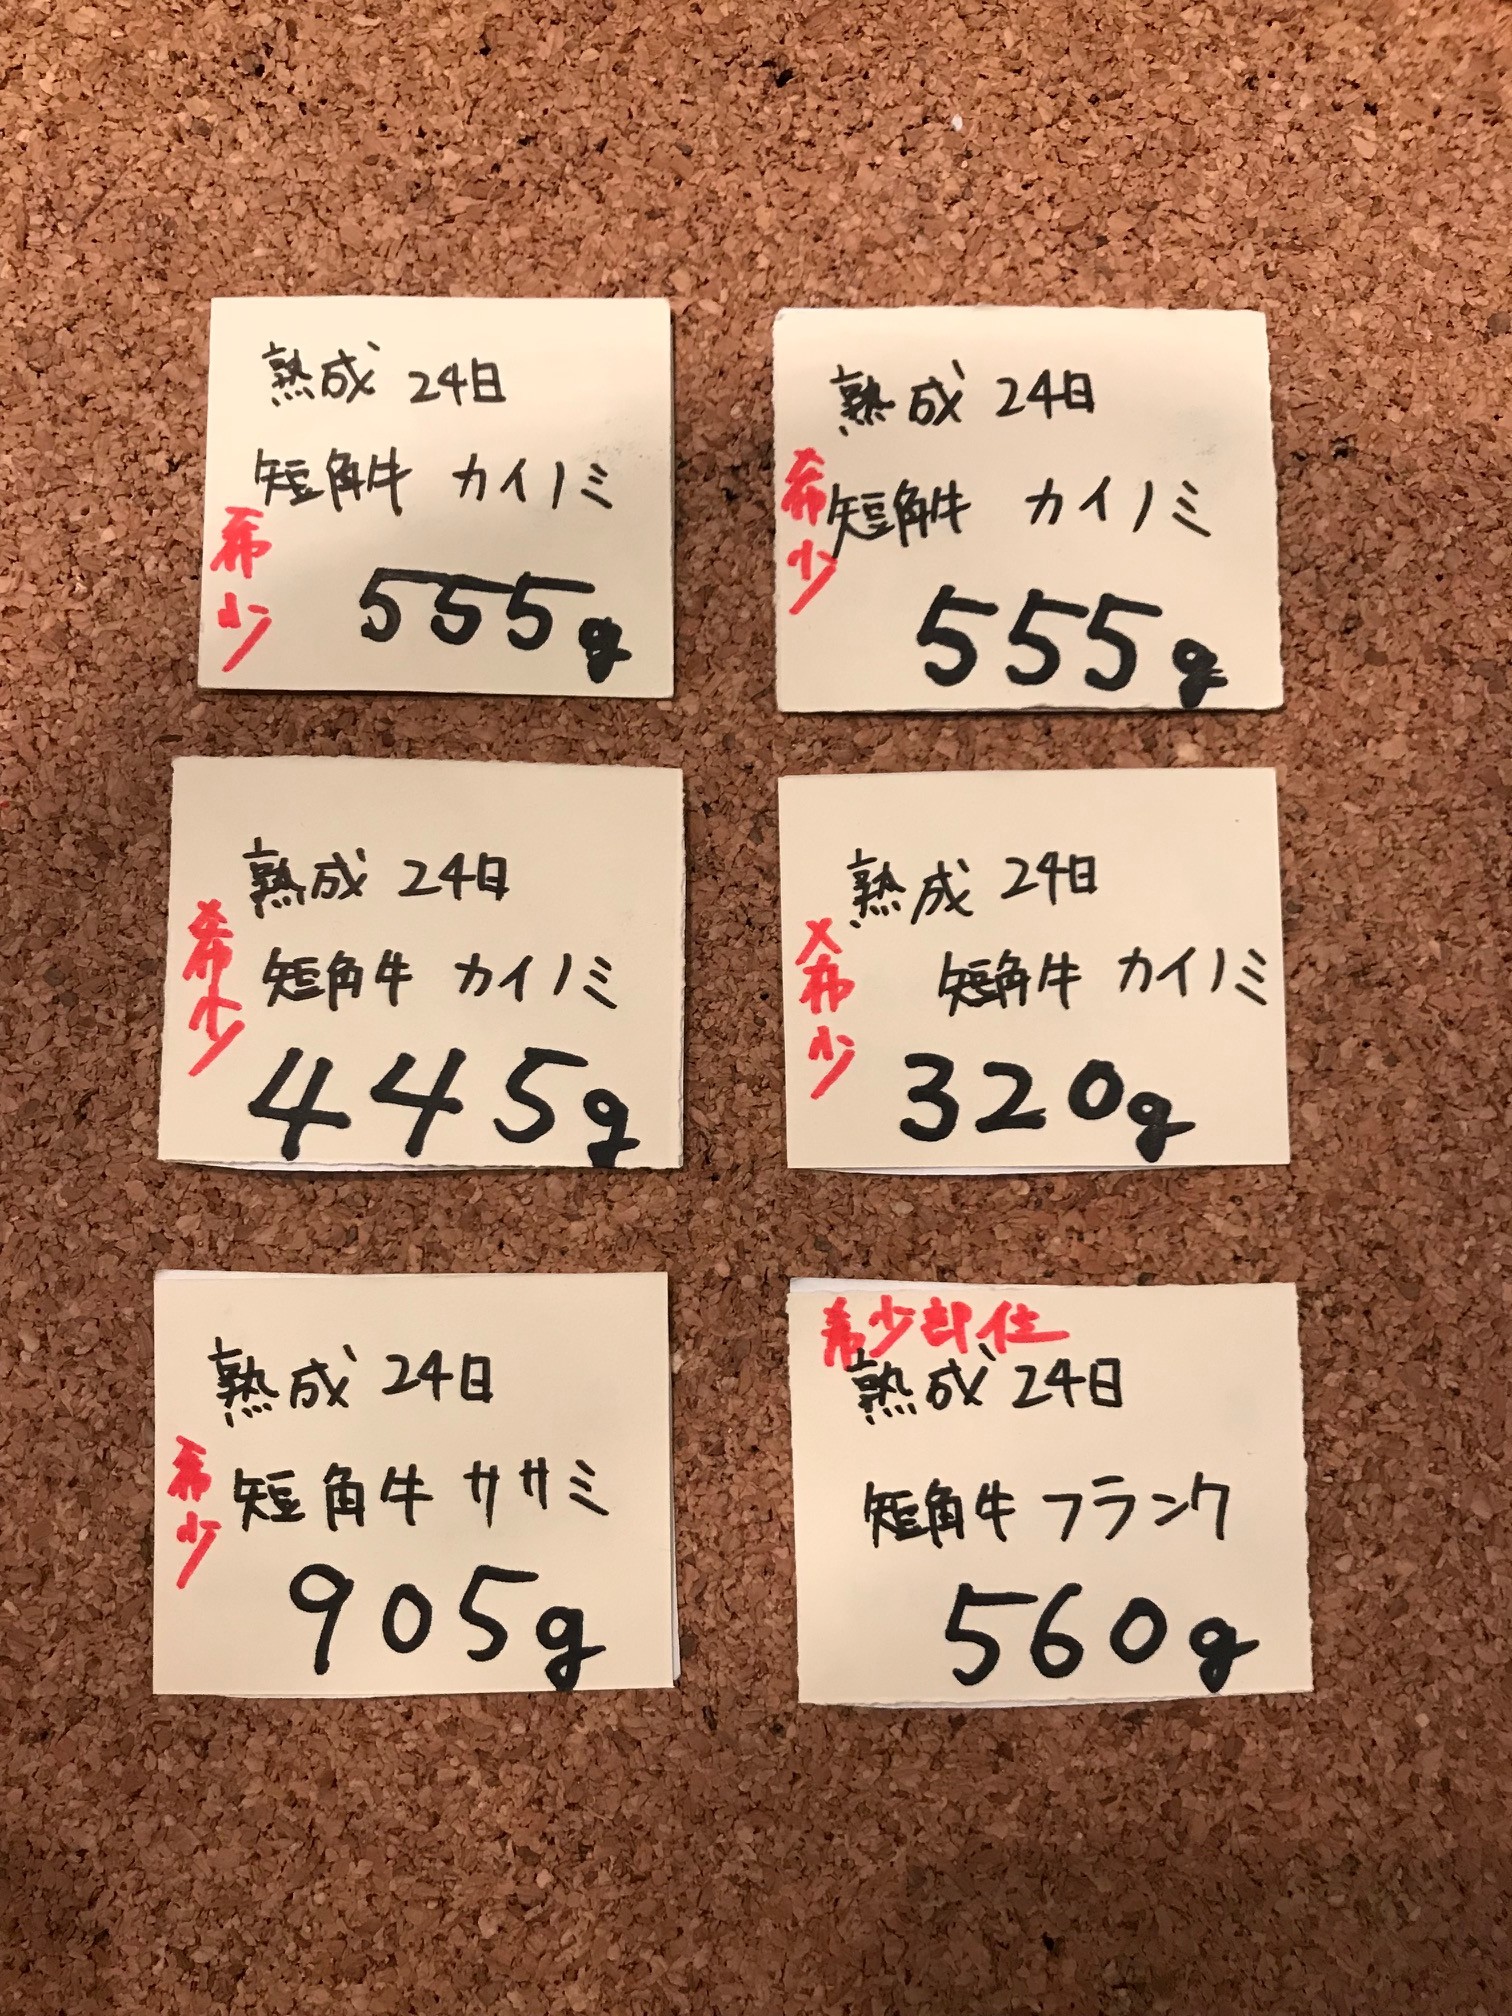 熟成 24日
短角牛 カイノミ
希少
555g
熟成 24日
短角牛 カイノミ
希少
555g
熟成 24日
短角牛 カイノミ
希少
445g
熟成 24日
短角牛 カイノミ
希少
320g
熟成 24日
短角牛 ササミ
希少
905g
希少部位
熟成 24日
短角牛 フランク
560g